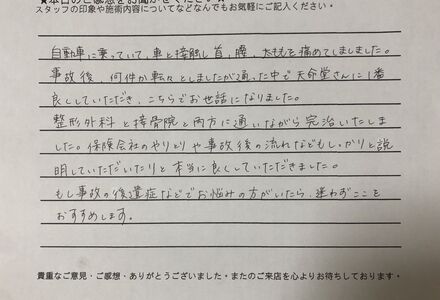 ★本日のご感想をお聞かせください★
スタッフの印象や施術内容についてなどなんでもお気軽にご記入ください・
自動車に乗っていて、車と接触し首、腰、太ももを痛めてしましました。
事故後、何件か転々としましたが通った中で天命堂さんに1番
良くしていただき、こちらでお世話になりました。
整形外科と接骨院と両方に通いながら完治いたしま
した。保険会社のやりとりや事故後の流れなどもしっかりと説
明していただいたりと本当に良くしていただきました。
もし事故の後遺症などでお悩みの方がいたら、迷わずここを
おすすめします。
貴重なご意見・ご感想・ありがとうございました・またのご来店を心よりお待ちしております・